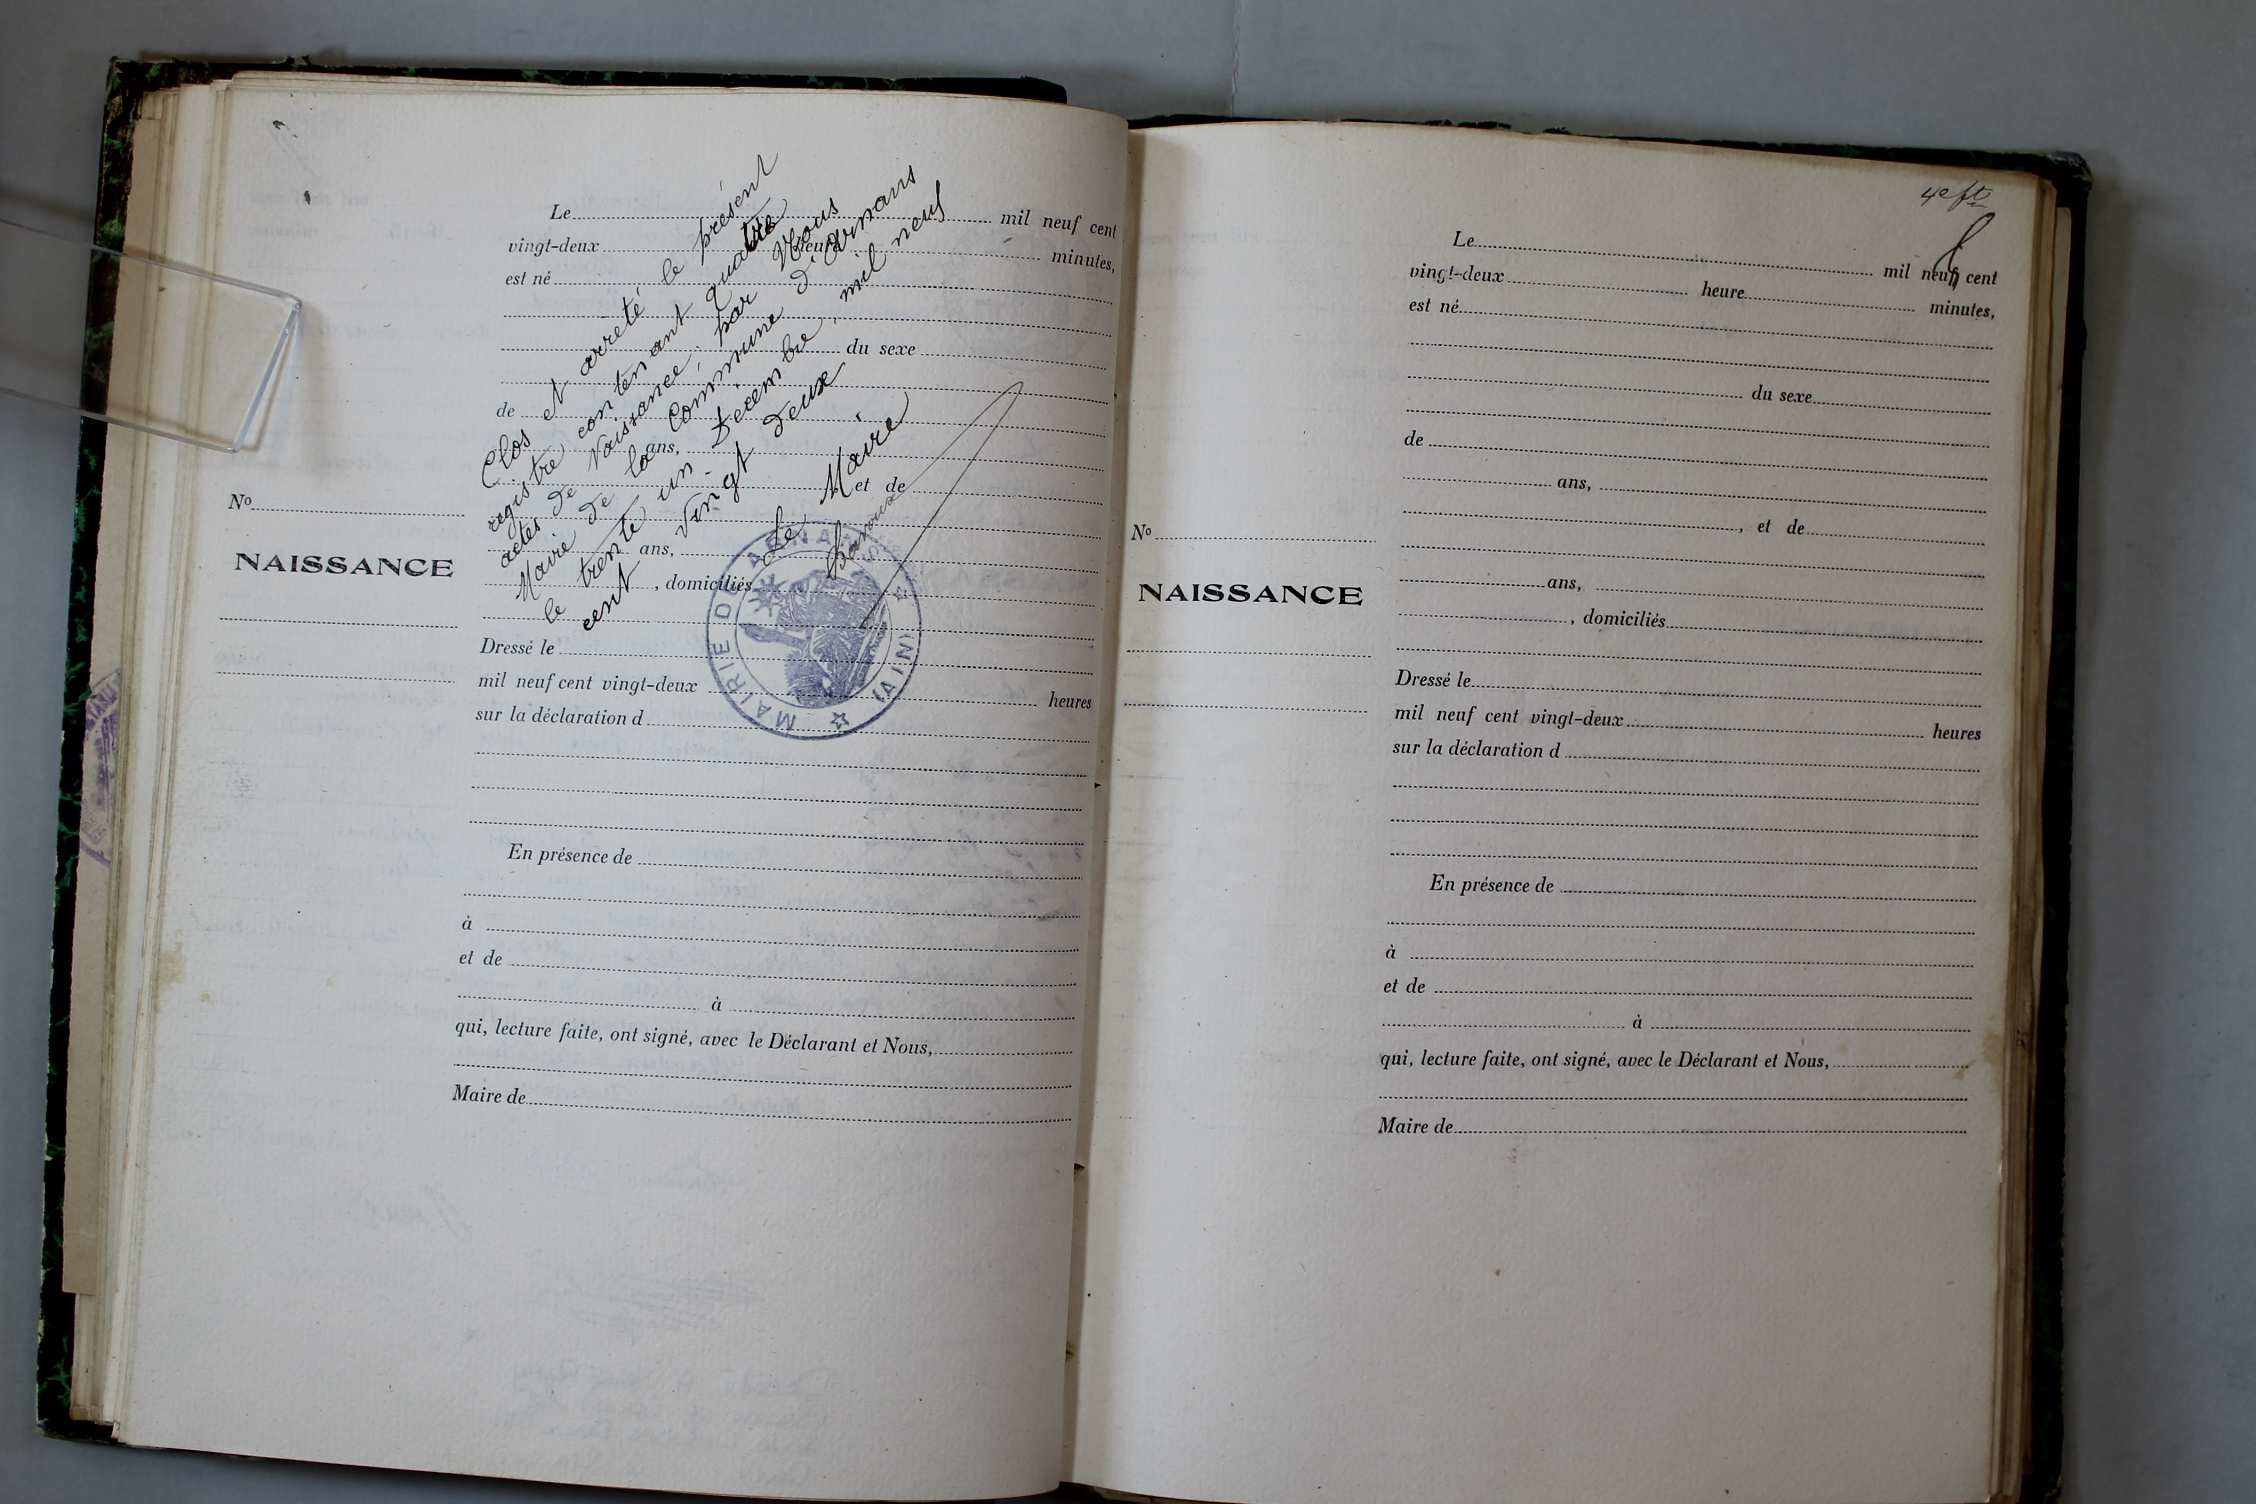 Le mil neuf cent
vingt-deux heure minutes,
est né
du sexe
de
ans,
et de
ans,
, domiciliés
Clos et arreté le présent
registre contenant quatre
actes de Naissance, par Nous
Maire de la Commune d'Arnans
le trente un Decembre, mil neuf
cent vingt deux
Le Maire
MAIRIE DE ARNANS
(AIN)
No
NAISSANCE
Dressé le
mil neuf cent vingt-deux heures
sur la déclaration d
En présence de
à
et de
à
qui, lecture faite, ont signé, avec le Déclarant et Nous,
Maire de
4e fto
Le mil neuf cent
vingt-deux heure minutes,
est né
du sexe
de
ans,
, et de
ans,
, domiciliés
No
NAISSANCE
Dressé le
mil neuf cent vingt-deux heures
sur la déclaration d
En présence de
à
et de
à
qui, lecture faite, ont signé, avec le Déclarant et Nous,
Maire de